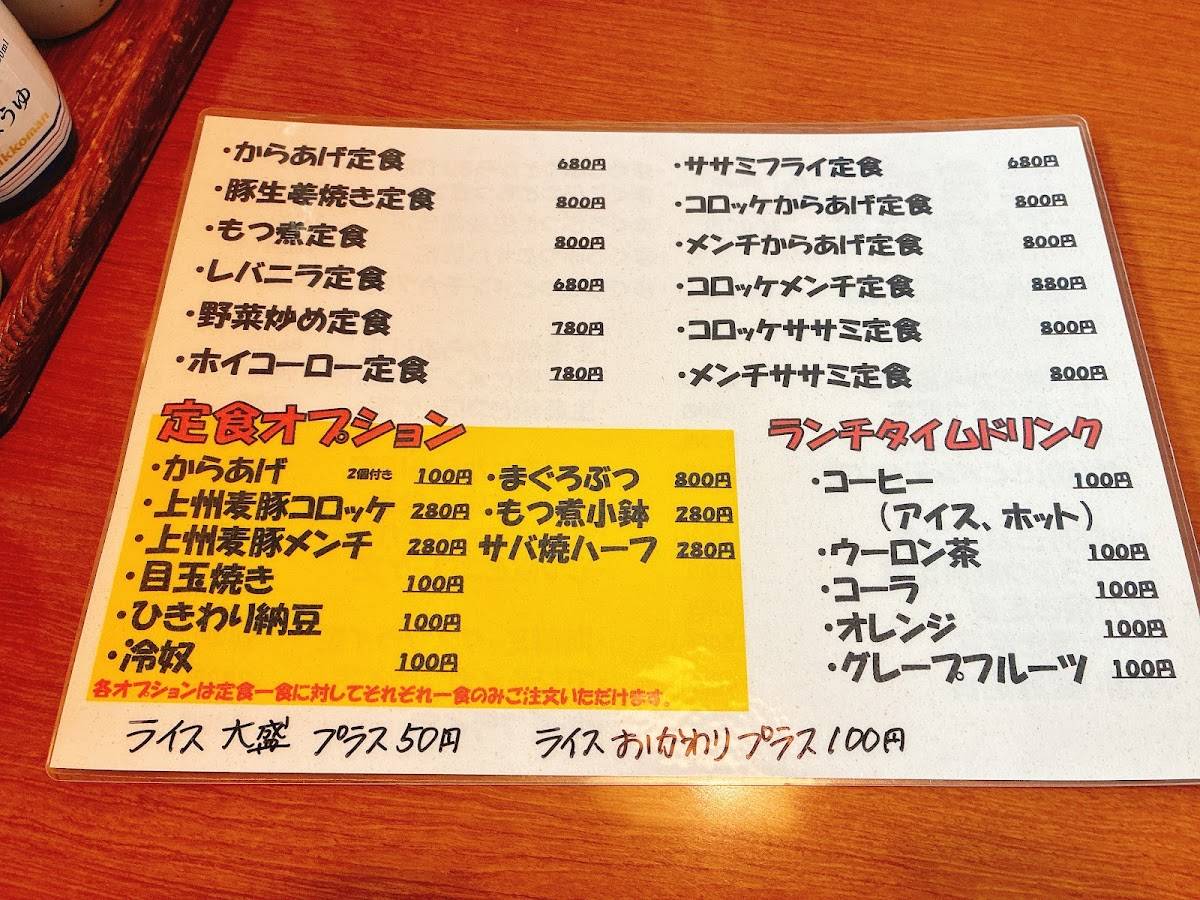 うゆ
kkoman
・からあげ定食 680円
・豚生姜焼き定食 800円
・もつ煮定食 800円
・レバニラ定食 680円
・野菜炒め定食 780円
・ホイコーロー定食 780円
・ササミフライ定食 680円
・コロッケからあげ定食 800円
・メンチからあげ定食 800円
・コロッケメンチ定食 880円
・コロッケササミ定食 800円
・メンチササミ定食 800円
定食オプション
・からあげ 2個付き 100円
・上州麦豚コロッケ 280円
・上州麦豚メンチ 280円
・目玉焼き 100円
・ひきわり納豆 100円
・冷奴 100円
・まぐろぶつ 800円
・もつ煮小鉢 280円
サバ焼ハーフ 280円
各オプションは定食一食に対してそれぞれ一食のみご注文いただけます。
ランチタイムドリンク
・コーヒー 100円
（アイス、ホット）
・ウーロン茶 100円
・コーラ 100円
・オレンジ 100円
・グレープフルーツ 100円
ライス 大盛 プラス50円
ライス おかわり プラス100円